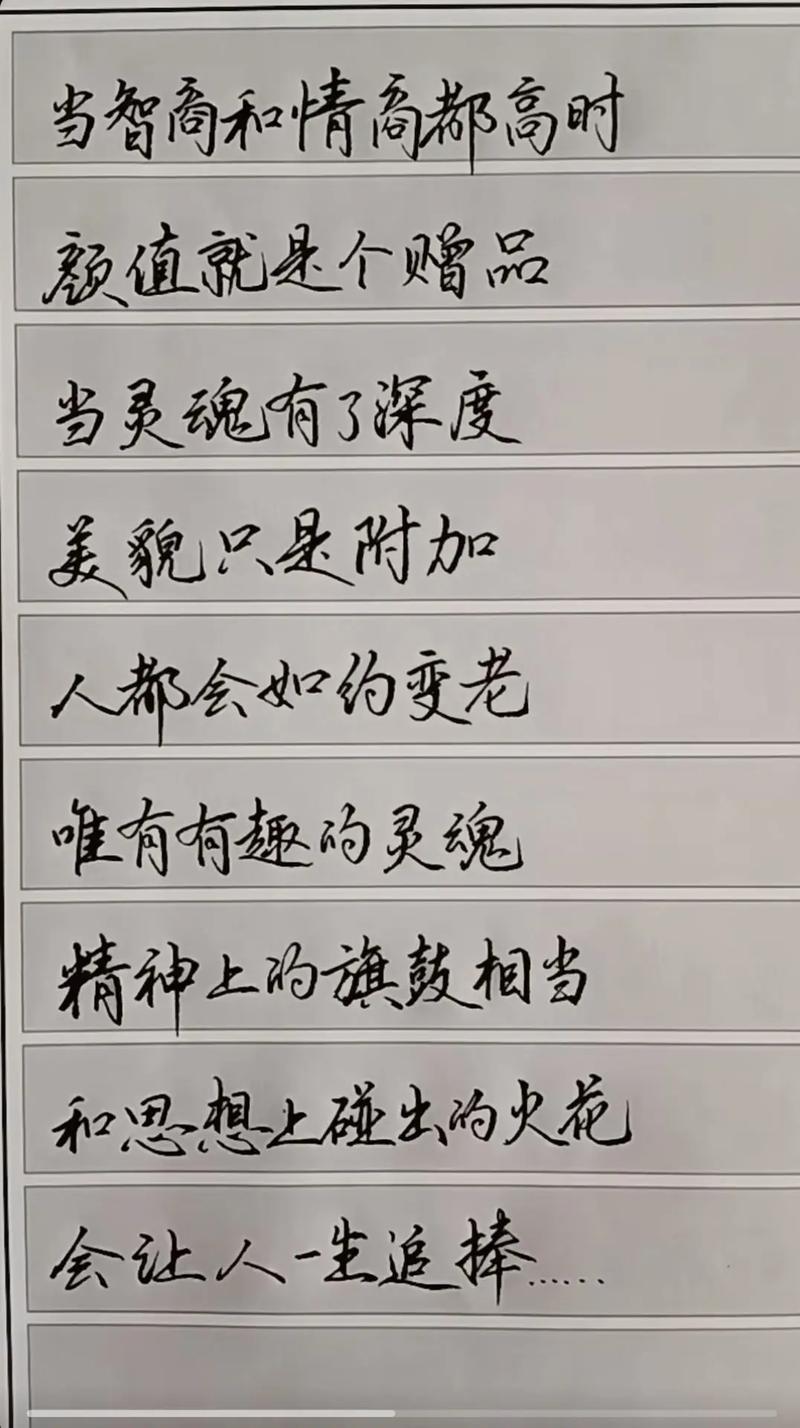 当智商和情商都高时
颜值就是个赠品
当灵魂有了深度
美貌只是附加
人都会如约变老
唯有有趣的灵魂
精神上的旗鼓相当
和思想上碰出的火花
会让人一生追捧……